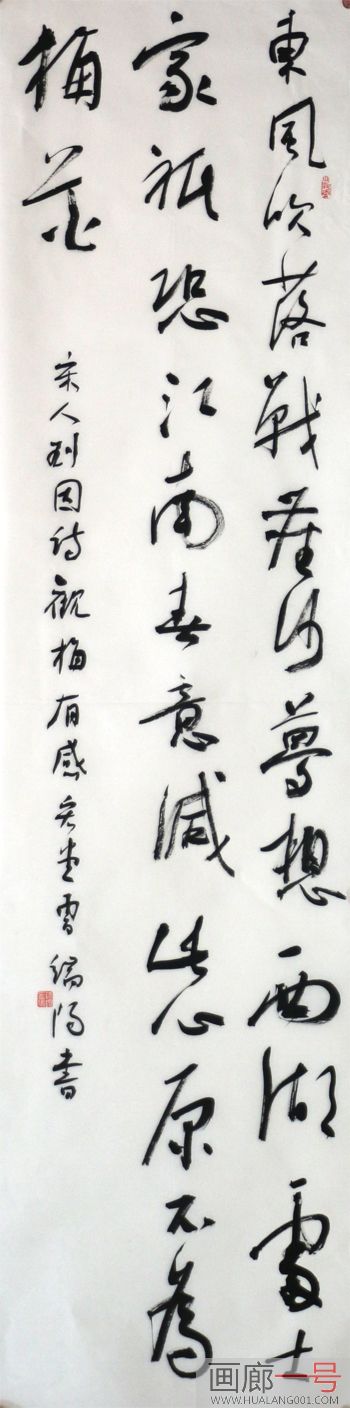 東風吹落戰塵沙夢想西湖處士
家祇恐江南春意減此心原不為
梅花
宋人刘因詩觀梅有感 書
画廊一号
WWW.HUALANG001.COM